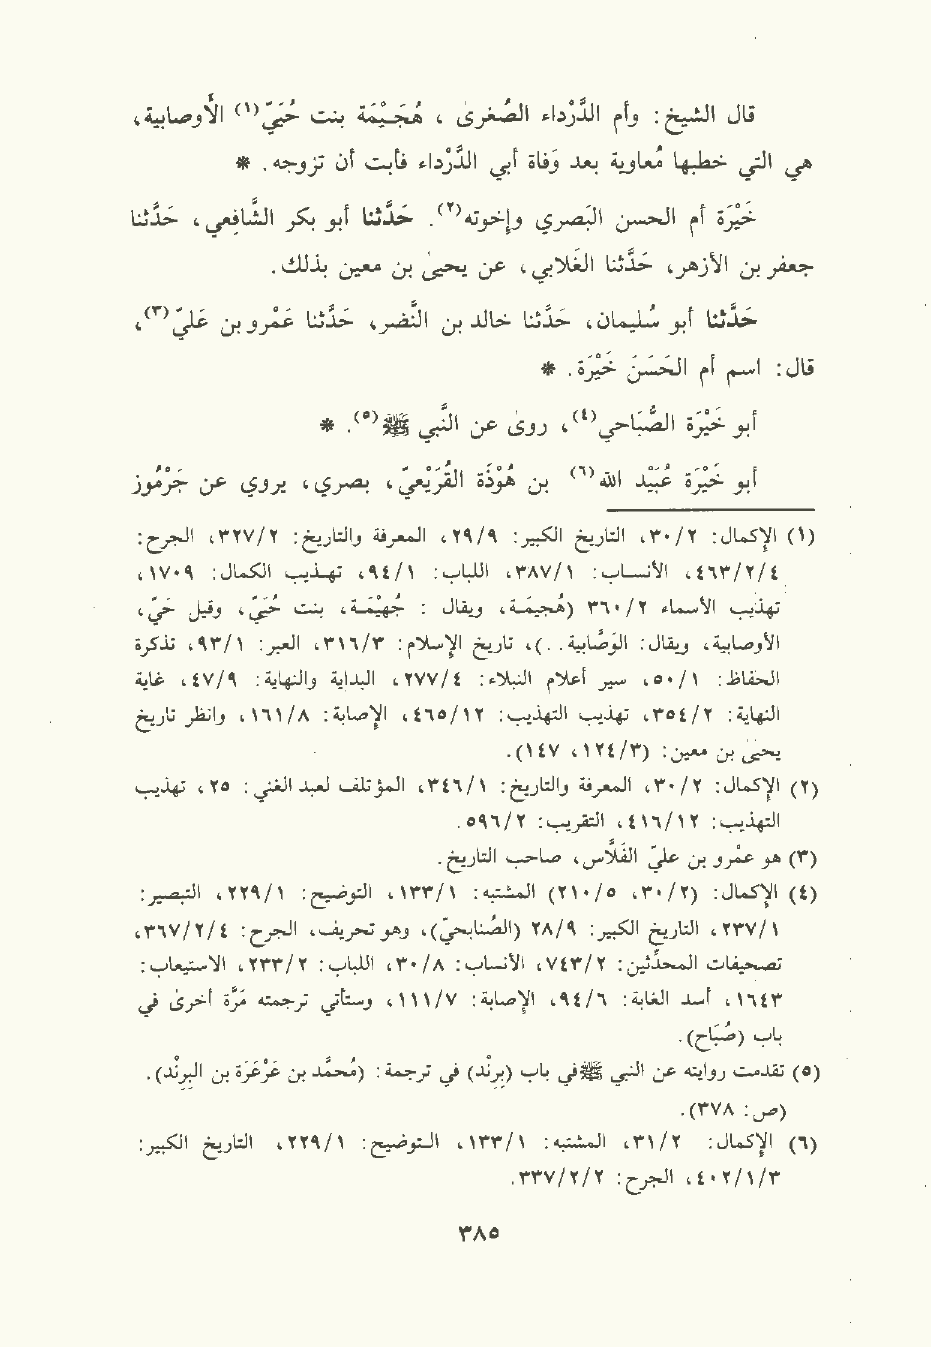 قال الشيخ: وأم الدَّرْداء الصُغرىٰ، هُجَـيْمَة بنت حُيَيّ(١) الأَوصابية،
هي التي خطبها مُعاوية بعد وَفاة أبي الدَّرْداء فأبت أن تزوجه. *
خَيْرَة أم الحسن البَصري وإخوته(٢). حَدَّثنا أبو بكر الشَّافِعي، حَدَّثنا
جعفر بن الأزهر، حَدَّثنا الغَلابي، عن يحيىٰ بن معين بذلك.
حَدَّثنا أبو سُليمان، حَدَّثنا خالد بن النَّضر، حَدَّثنا عَمْرو بن عَليّ(٣)،
قال: اسم أم الحَسَنَ خَيْرَة. *
أبو خَيْرَة الصُّبَاحي(٤)، روىٰ عن النَّبي ﷺ(٥). *
أبو خَيْرَة عُبَيْد الله(٦) بن هُوْذَة القُرَيْعيّ، بصري، يروي عن جَرْمُوز
(١) الإكمال: ٣٠/٢، التاريخ الكبير: ٢٩/٩، المعرفة والتاريخ: ٣٢٧/٢، الجرح:
٤٦٣/٢/٤، الأنساب: ٣٨٧/١، اللباب: ٩٤/١، تهذيب الكمال: ١٧٠٩،
تهذيب الأسماء ٣٦٠/٢ (هُجيمَـة، ويقال: جُهَيْمَـة، بنت حُيَيّ، وقيل حَيّ،
الأوصابية، ويقال: الوَصَّابية..)، تاريخ الإسلام: ٣١٦/٣، العبر: ٩٣/١، تذكرة
الحفاظ: ٥٠/١، سير أعلام النبلاء: ٢٧٧/٤، البداية والنهاية: ٤٧/٩، غاية
النهاية: ٣٥٤/٢، تهذيب التهذيب: ٤٦٥/١٢، الإصابة: ١٦١/٨، وانظر تاريخ
يحيىٰ بن معين: (١٢٤/٣، ١٤٧).
(٢) الإكمال: ٣٠/٢، المعرفة والتاريخ: ٣٤٦/١، المؤتلف لعبد الغني: ٢٥، تهذيب
التهذيب: ٤١٦/١٢، التقريب: ٥٩٦/٢.
(٣) هو عمْرو بن عليّ الفَلَّاس، صاحب التاريخ.
(٤) الإكمال: (٣٠/٢، ٢١٠/٥) المشتبه: ١٣٣/١، التوضيح: ٢٢٩/١، التبصير:
٢٣٧/١، التاريخ الكبير: ٢٨/٩ (الصُنابحيّ)، وهو تحريف، الجرح: ٣٦٧/٢/٤،
تصحيفات المحدِّثين: ٧٤٣/٢، الأنساب: ٣٠/٨، اللباب: ٢٣٣/٢، الاستيعاب:
١٦٤٣، أسد الغابة: ٩٤/٦، الإصابة: ١١١/٧، وستأتي ترجمته مَرَّة أخرىٰ في
باب (صُبَاح).
(٥) تقدمت روايته عن النبي ﷺ في باب (بِرِنْد) في ترجمة: (محُمَّد بن عَرْعَرَة بن البِرِنْد).
(ص: ٣٧٨).
(٦) الإكمال: ٣١/٢، المشتبه: ١٣٣/١، التوضيح: ٢٢٩/١، التاريخ الكبير:
٤٠٢/١/٣، الجرح: ٣٣٧/٢/٢.
٣٨٥